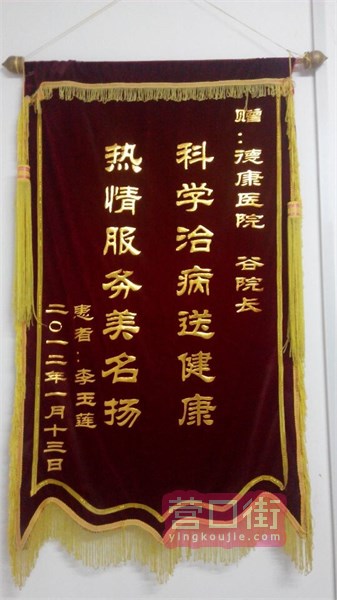 赠：德康医院 谷院长
科学治病送健康
热情服务美名扬
患者：李玉莲
二〇一二年一月十三日
营口街
yingkoujie.com